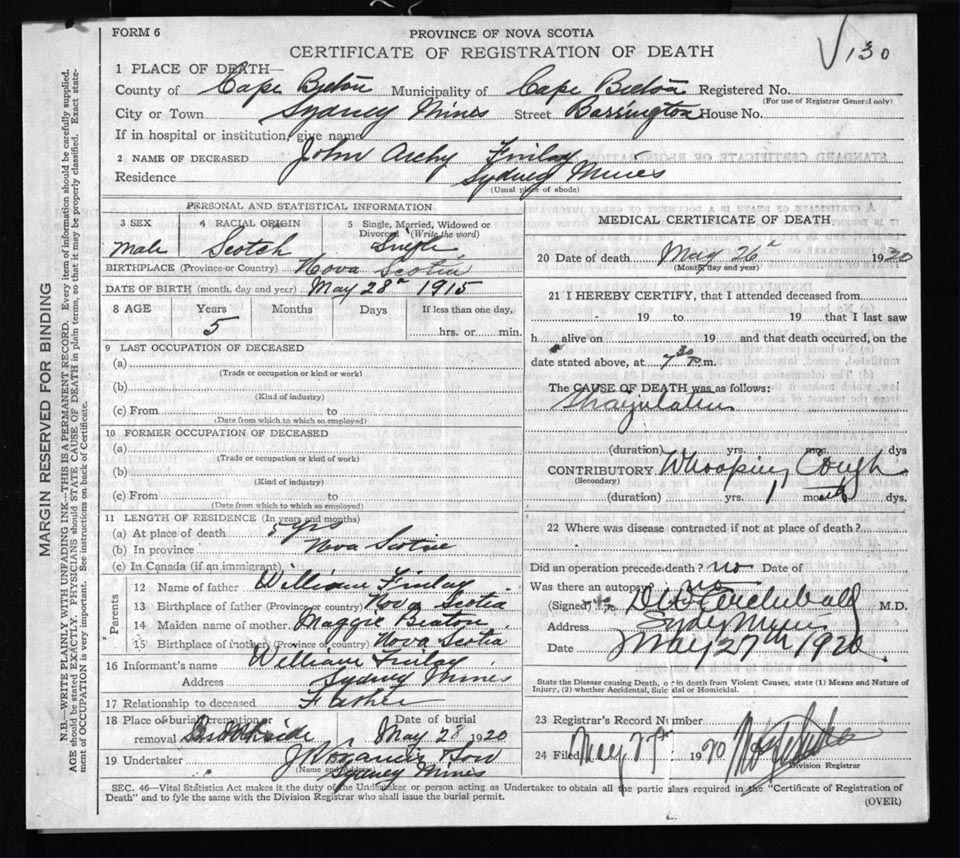 FORM 6
PROVINCE OF NOVA SCOTIA
CERTIFICATE OF REGISTRATION OF DEATH
130
1 PLACE OF DEATH—
County of Cape Breton Municipality of Cape Breton Registered No.
(For use of Registrar General only)
City or Town Sydney Mines Street Barrington House No.
If in hospital or institution, give name
2 NAME OF DECEASED John Archy Finlay
Residence Sydney Mines
(Usual place of abode)
PERSONAL AND STATISTICAL INFORMATION
3 SEX 4 RACIAL ORIGIN 5 Single, Married, Widowed or Divorced (Write the word)
Male Scotch Single
BIRTHPLACE (Province or Country) Nova Scotia
DATE OF BIRTH (month, day and year) May 28th 1915
8 AGE Years Months Days If less than one day,
5 hrs. or min.
9 LAST OCCUPATION OF DECEASED
(a)
(Trade or occupation or kind or work)
(b)
(Kind of industry)
(c) From to
(Date from which to which so employed)
10 FORMER OCCUPATION OF DECEASED
(a)
(Trade or occupation or kind of work)
(b)
(Kind of industry)
(c) From to
(Date from which to which so employed)
11 LENGTH OF RESIDENCE (In years and months)
(a) At place of death 5 yrs
(b) In province Nova Scotia
(c) In Canada (if an immigrant)
Parents
12 Name of father William Finlay
13 Birthplace of father (Province or country) Nova Scotia
14 Maiden name of mother Maggie Beaton
15 Birthplace of mother (Province or country) Nova Scotia
16 Informant's name William Finlay
Address Sydney Mines
17 Relationship to deceased Father
18 Place of burial, cremation or removal Brookside Date of burial May 28 1920
19 Undertaker & Son
(Name and address)
Sydney Mines
MEDICAL CERTIFICATE OF DEATH
20 Date of death May 26th 1920
(Month, day and year)
21 I HEREBY CERTIFY, that I attended deceased from
19 to 19 that I last saw
h alive on 19 and that death occurred, on the
date stated above, at 7 30 P.m.
The CAUSE OF DEATH was as follows:
(duration) yrs. mos. dys
CONTRIBUTORY Whooping Cough
(Secondary)
(duration) yrs. 1 month dys.
22 Where was disease contracted if not at place of death?
Did an operation precede death? no Date of
Was there an autopsy no
(Signed) Archibald M.D.
Address Sydney Mines
Date May 27th 1920
State the Disease causing Death, or in death from Violent Causes, state (1) Means and Nature of
Injury, (2) whether Accidental, Suicidal or Homicidal.
23 Registrar's Record Number
24 Filed May 1920
Division Registrar
SEC. 46—Vital Statistics Act makes it the duty of the Undertaker or person acting as Undertaker to obtain all the particulars required in the "Certificate of Registration of
Death" and to fyle the same with the Division Registrar who shall issue the burial permit.
(OVER)
MARGIN RESERVED FOR BINDING
N.B.—WRITE PLAINLY WITH UNFADING INK—THIS IS A PERMANENT RECORD. Every item of information should be carefully supplied.
AGE should be stated EXACTLY. PHYSICIANS should STATE CAUSE OF DEATH in plain terms, so that it may be properly classified. Exact state-
ment of OCCUPATION is very important. See instructions on back of Certificate.